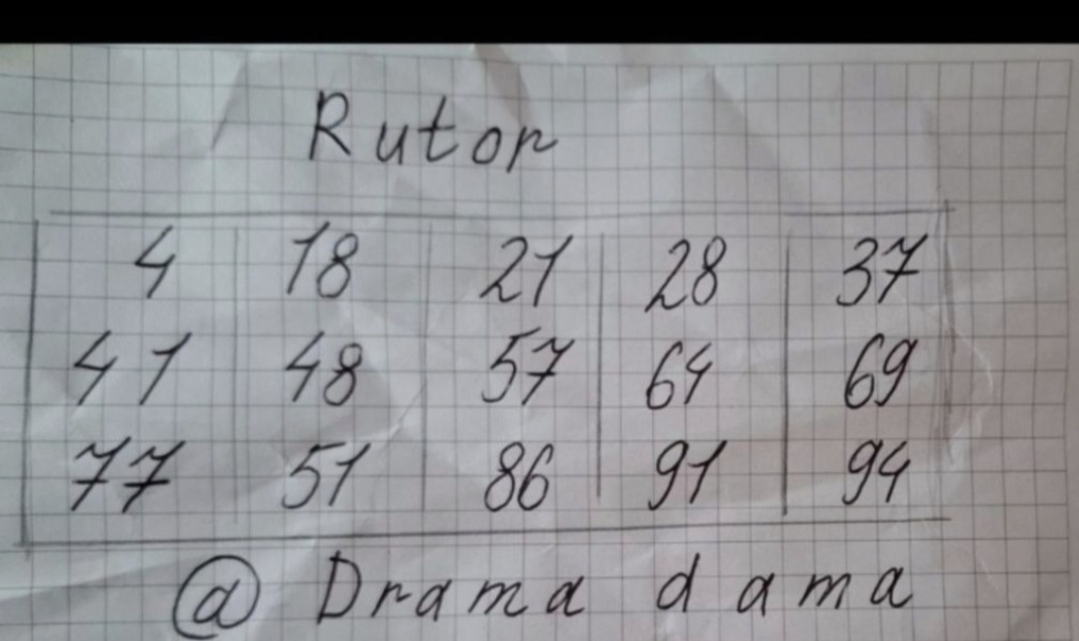 Rutor
4 18 21 28 37
41 48 57 64 69
77 51 86 91 94
@ Drama dama